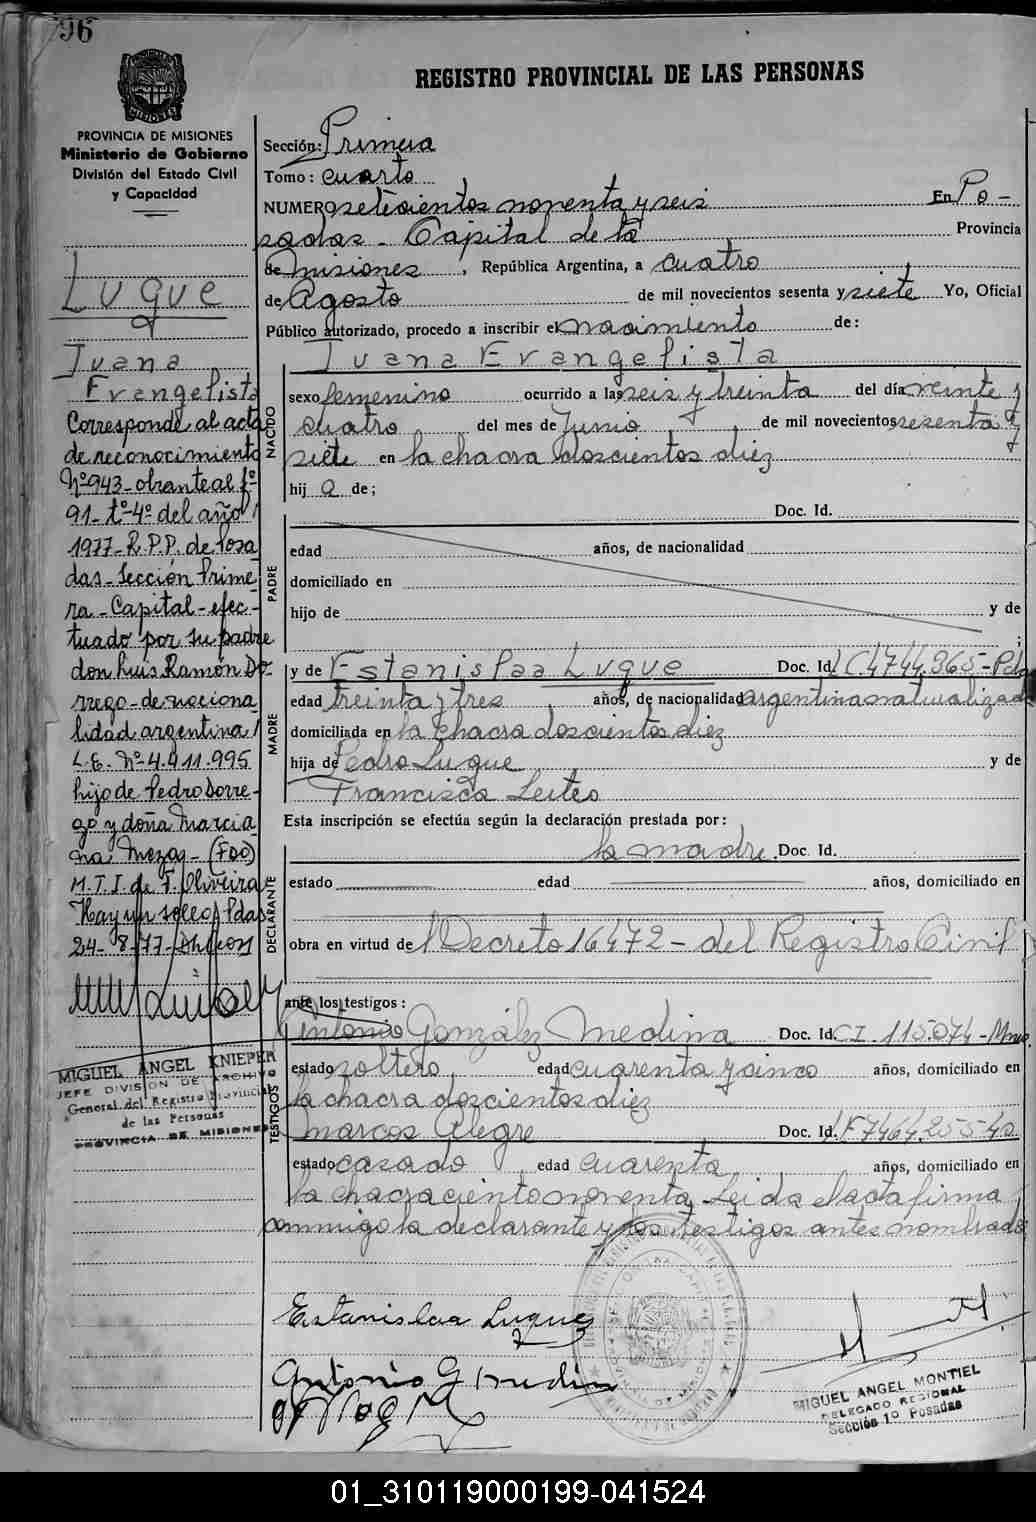 96
REGISTRO PROVINCIAL DE LAS PERSONAS
PROVINCIA DE MISIONES
Ministerio de Gobierno
División del Estado Civil
y Capacidad
Luque
Juana
Evangelista
Corresponde al acta
de reconocimiento
Nº 943 - obrante al fº
91 - tº 4º del año
1977 - R.P.P. de Posa
das - Sección Prime
ra - Capital - efec-
tuado por su padre
don Luis Ramón Do-
rrego - de naciona
lidad argentina
L.E. Nº 4.911.995
hijo de Pedro Dorre-
go y doña Marcia
na Meza - (FDO)
M.T.I. de F. Oliveira
Hay un sello Pdas
24 - 8 - 77
MIGUEL ANGEL KNIEPER
JEFE DIVISION DE ARCHIVO
General del Registro Provincial
de las Personas
PROVINCIA DE MISIONES
Sección: Primera
Tomo: cuarto
NUMERO setecientos noventa y seis En Po-
sadas - Capital de la Provincia
de Misiones, República Argentina, a cuatro
de Agosto de mil novecientos sesenta y siete Yo, Oficial
Público autorizado, procedo a inscribir el nacimiento de:
Juana Evangelista
NACIDO
sexo femenino ocurrido a las seis y treinta del día veinte y
cuatro del mes de Junio de mil novecientos sesenta y
siete en la chacra doscientos diez
hij a de;
PADRE
Doc. Id.
edad años, de nacionalidad
domiciliado en
hijo de y de
;
MADRE
y de Estanislaa Luque Doc. Id. LC. 4744.865 - Pdas
edad treinta y tres años, de nacionalidad argentina naturalizada
domiciliada en la chacra doscientos diez
hija de Pedro Luque y de
Francisca Leites
Esta inscripción se efectúa según la declaración prestada por:
DECLARANTE
la madre. Doc. Id.
estado edad años, domiciliado en
obra en virtud del Decreto 16472 - del Registro Civil
ante los testigos:
TESTIGOS
Antonio González Medina Doc. Id. CI. 115074 - Mnes.
estado soltero edad cuarenta y cinco años, domiciliado en
la chacra doscientos diez
Marcos Alegre Doc. Id.
estado casado, edad cuarenta, años, domiciliado en
la chacra ciento noventa. Leida el acta firma
conmigo la declarante y los testigos antes nombrados
Estanislaa Luque
Antonio G Medina
MIGUEL ANGEL MONTIEL
DELEGADO REGIONAL
Sección 1º Posadas
01_310119000199-041524